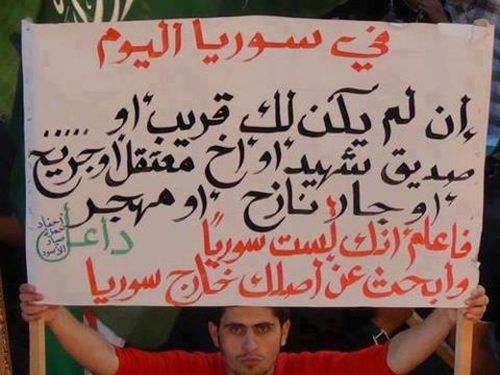 في سوريا اليوم
إن لم يكن لك قريب أو .....
صديق شهيد أو أخ معتقل أو جريح
أو جار نازح أو مهجر
فاعلم أنك لست سوريا
وابحث عن أصلك خارج سوريا
داعل
أحفاد
حمزة
صياد
الأسود